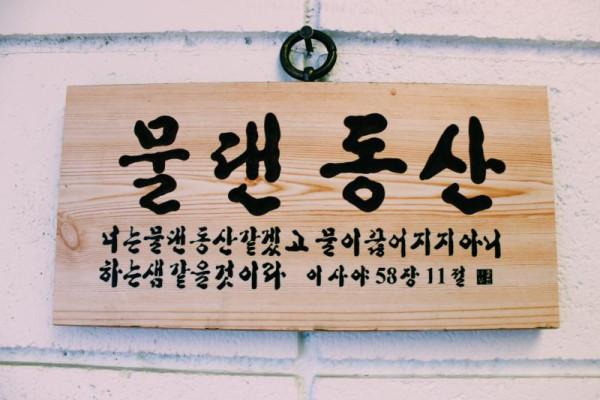 물댄 동산
너는 물댄 동산 같겠고 물이 끊어지지 아니
하는 샘 같을 것이라 이사야 58장 11절